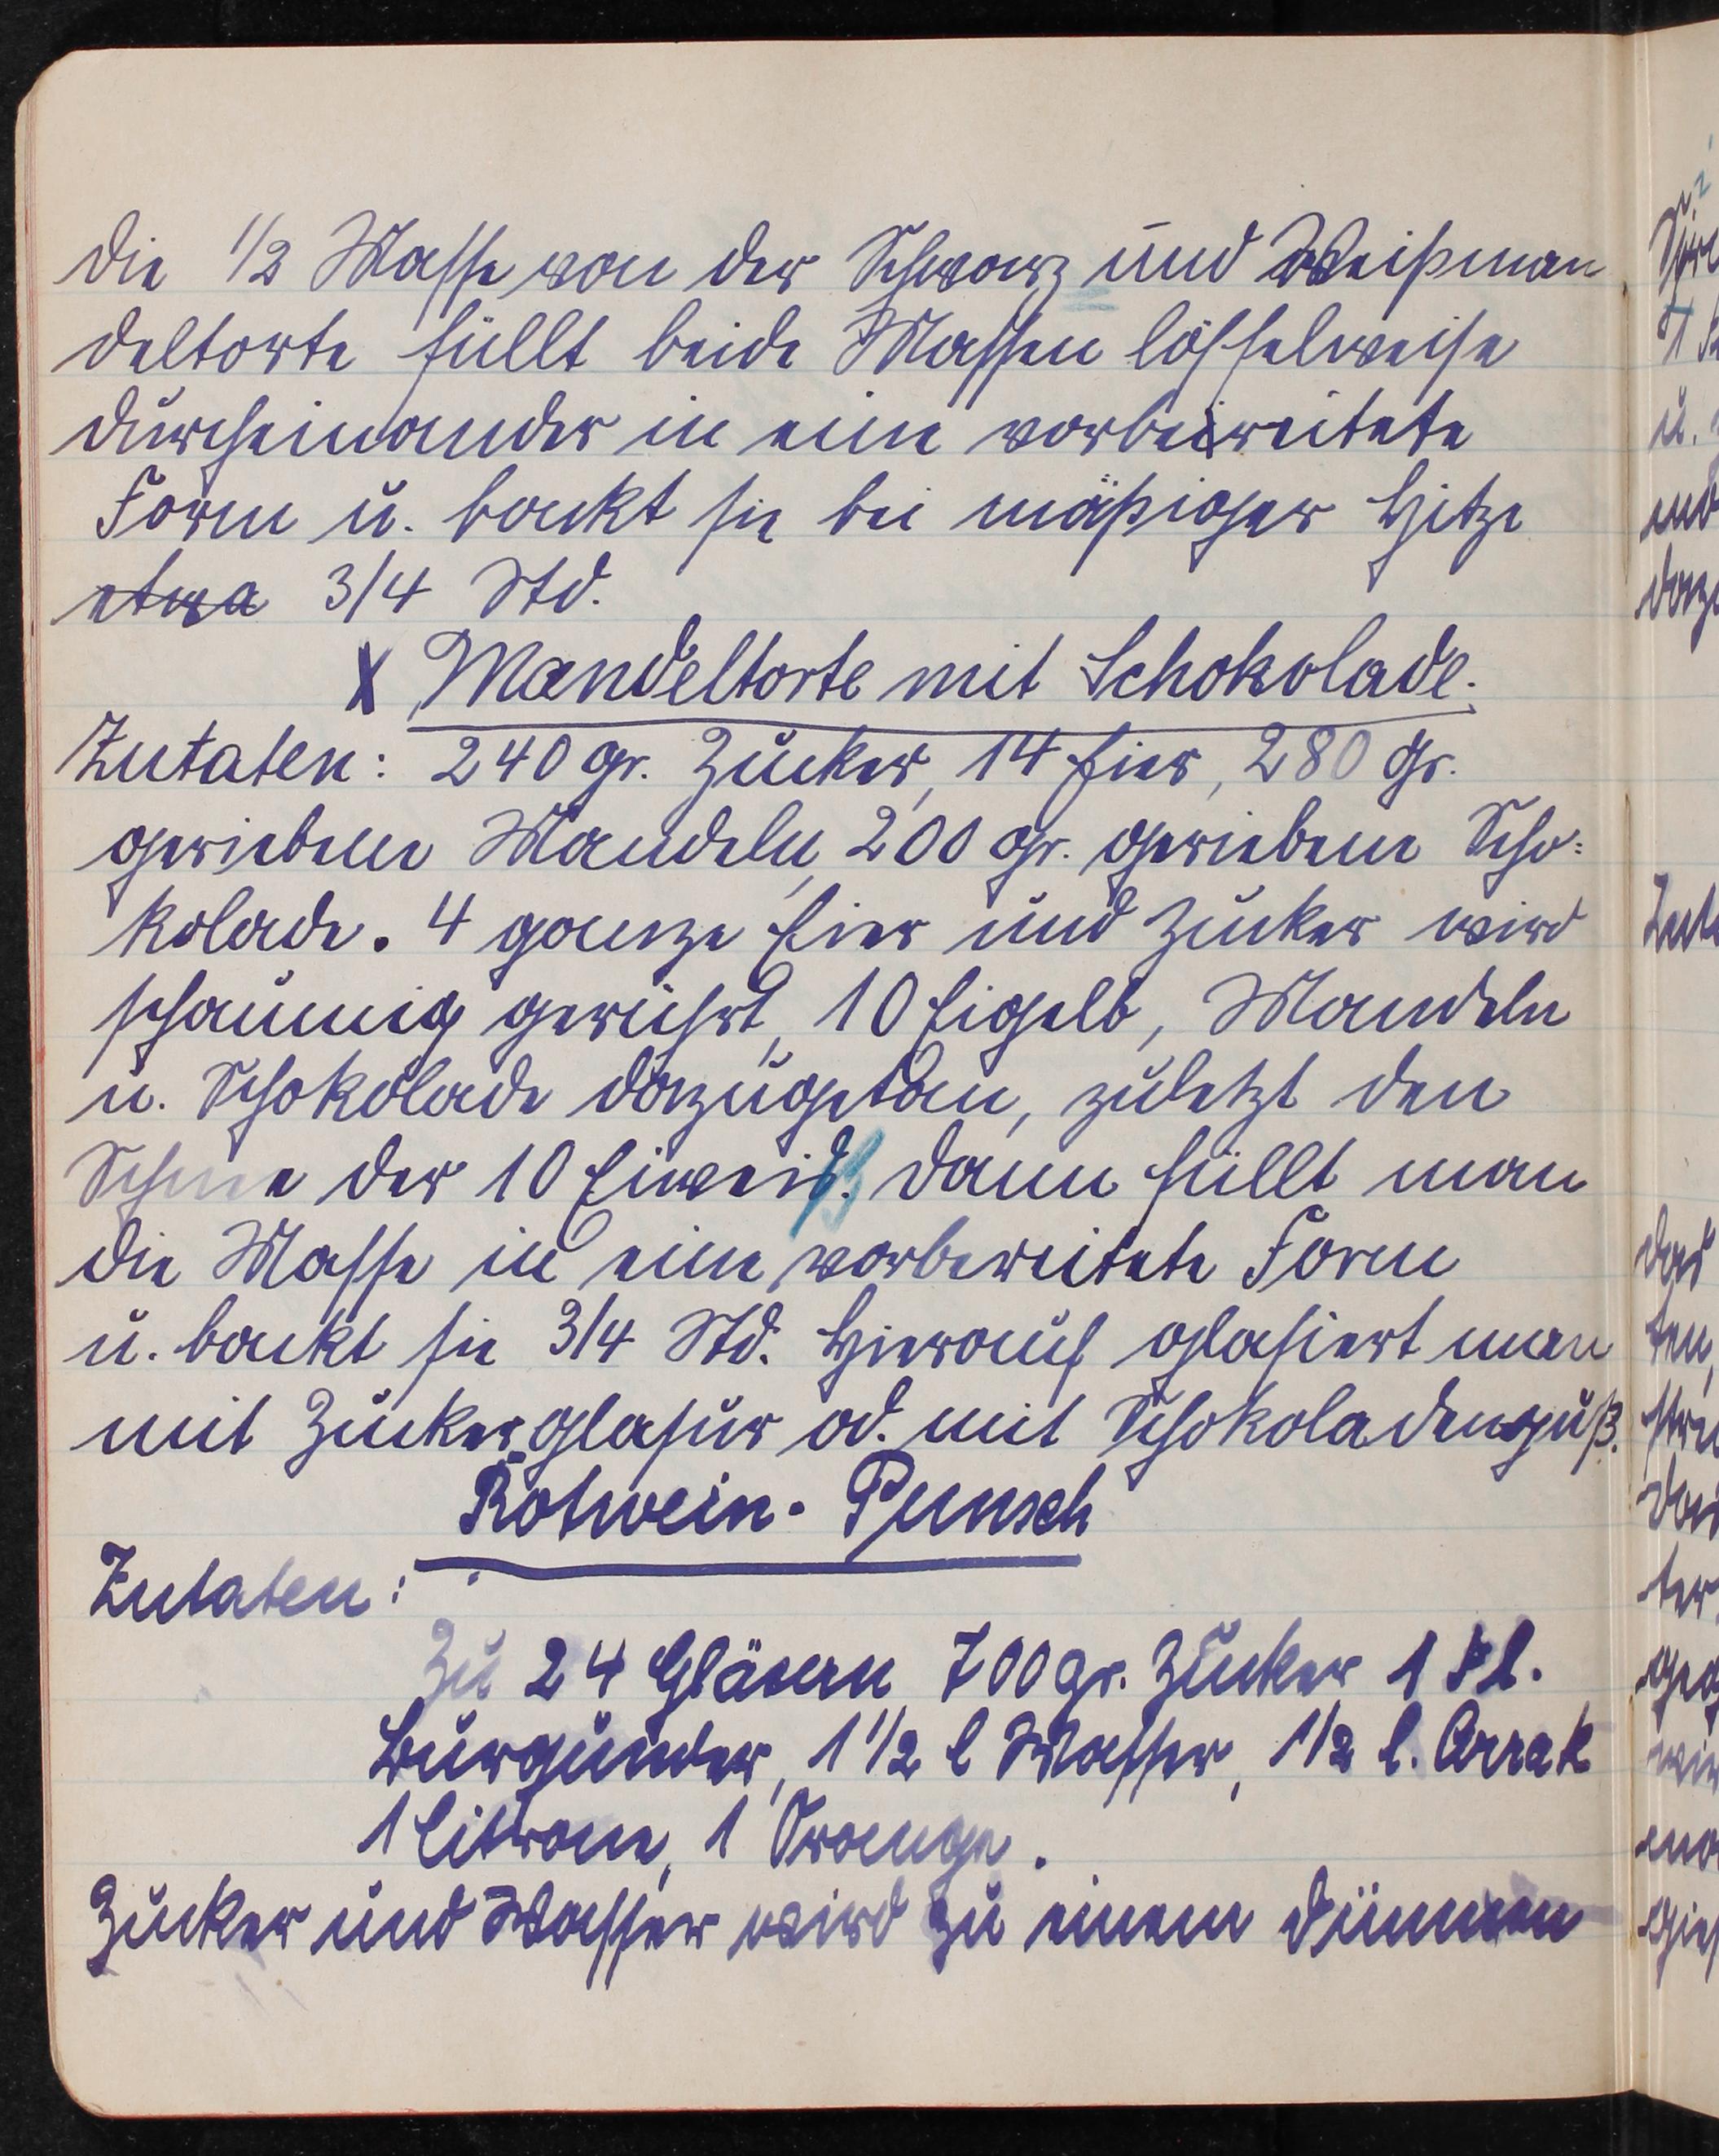 die 1/2 Masse von der Schwarz und Weißman
deltorte füllt beide Massen löffelweise
durcheinander in eine vorbereitete
Form u. backt sie bei mäßiger Hitze
etwa 3/4 Std.
X Mandeltorte mit Schokolade.
Zutaten: 240 gr. Zucker, 14 Eier, 280 gr.
geriebene Mandeln, 200 gr. geriebene Scho:
kolade. 4 ganze Eier und Zucker wird
schaumig gerührt, 10 Eigelb, Mandeln
u. Schokolade dazugetan, zuletzt den
Schnee der 10 Eiweiß. Dann füllt man
die Masse in eine vorbereitete Form
u. backt sie 3/4 Std. Hierauf glasiert man
mit Zuckerglasur od. mit Schokoladenguß.
Rotwein-Punsch
Zutaten:
Zu 24 Gläsern 700 gr. Zucker 1 Fl.
Burgunder, 1 1/2 l Wasser, 1/2 l. Arrak
1 Citrone, 1 Orange.
Zucker und Wasser wird zu einem dünnen